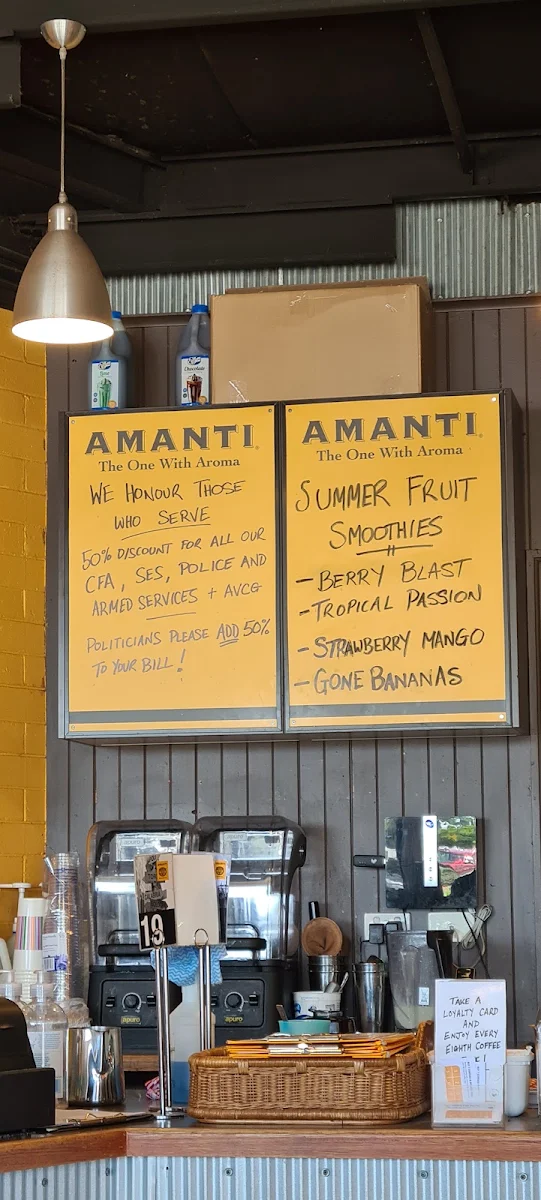 Chocolate
AMANTI
The One With Aroma
WE HONOUR THOSE
WHO SERVE
50% DISCOUNT FOR ALL OUR
CFA, SES, POLICE AND
ARMED SERVICES + AVCG
POLITICIANS PLEASE ADD 50%
TO YOUR BILL!
AMANTI
The One With Aroma
SUMMER FRUIT
SMOOTHIES
- BERRY BLAST
- TROPICAL PASSION
- STRAWBERRY MANGO
- GONE BANANAS
19
apuro
apuro
TAKE A
LOYALTY CARD
AND
ENJOY EVERY
EIGHTH COFFEE